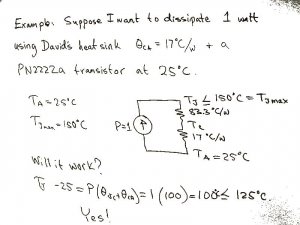 Example: Suppose I want to dissipate 1 watt
using David's heatsink θca = 17°C/W + a
PN2222a transistor at 25°C.
TA = 25°C
TJmax = 150°C
P=1
TJ ≤ 150°C = TJmax
83.3 °C/W
Tc
17 °C/W
TA = 25°C
Will it work?
TJ - 25 = P(θJC+θCA) = 1 (100) = 100 ≤ 125°C.
Yes!